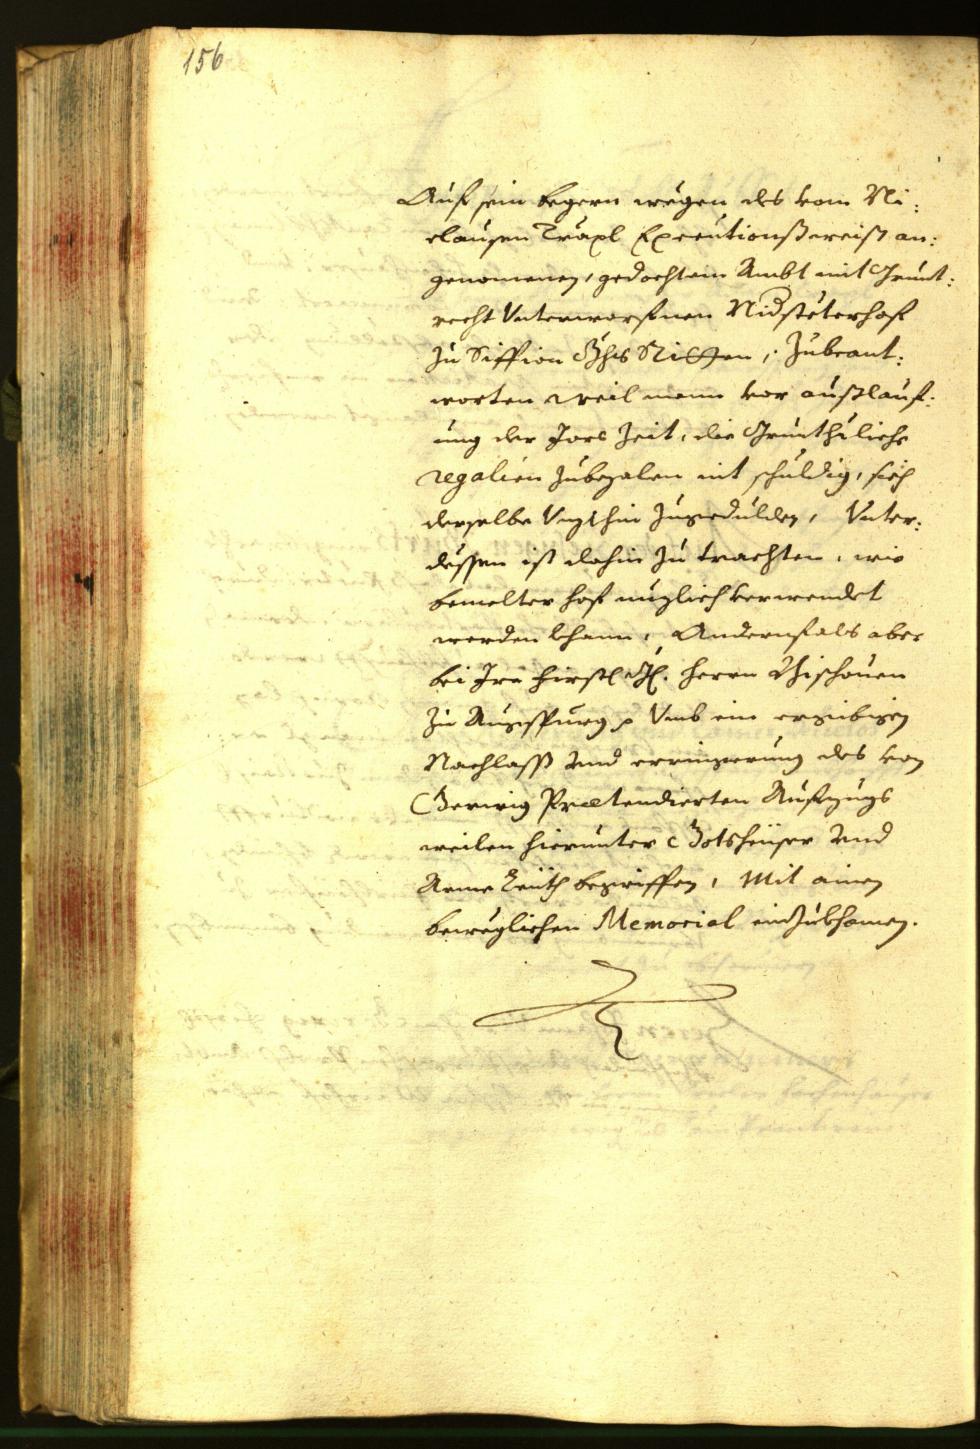 156
Auf sein begern wegen des vom Ni:
clausen Träxl Executionßweiß an:
genomenen, gedachtem Ambt mit Grunt:
recht Vnterworfnen Nidsteterhof
zu Siffion Ghts Ritten, Zubeant:
worten weil mann vor außlauf:
ung der Jars Zeit, die Grunthüliche
regalien Zubezalen nit schuldig, sich
derselbe Vnzthin Zugedulden, Vnter:
dessen ist dahin Zu trachten, wie
bemelter hof nuzlich verwendet
werden khann, Andernfals aber
bei Irn Hirstl. Herrn Bischouen
Zu Augspurg Vmb ein ergibigen
Nachlaß und erringerung des von
Gerwig Prætendierten Aufzugs
weilen hierunter Gotsheuser Und
Arme Leüth begriffen, Mit ainen
beweglichen Memorial einzukhomen.